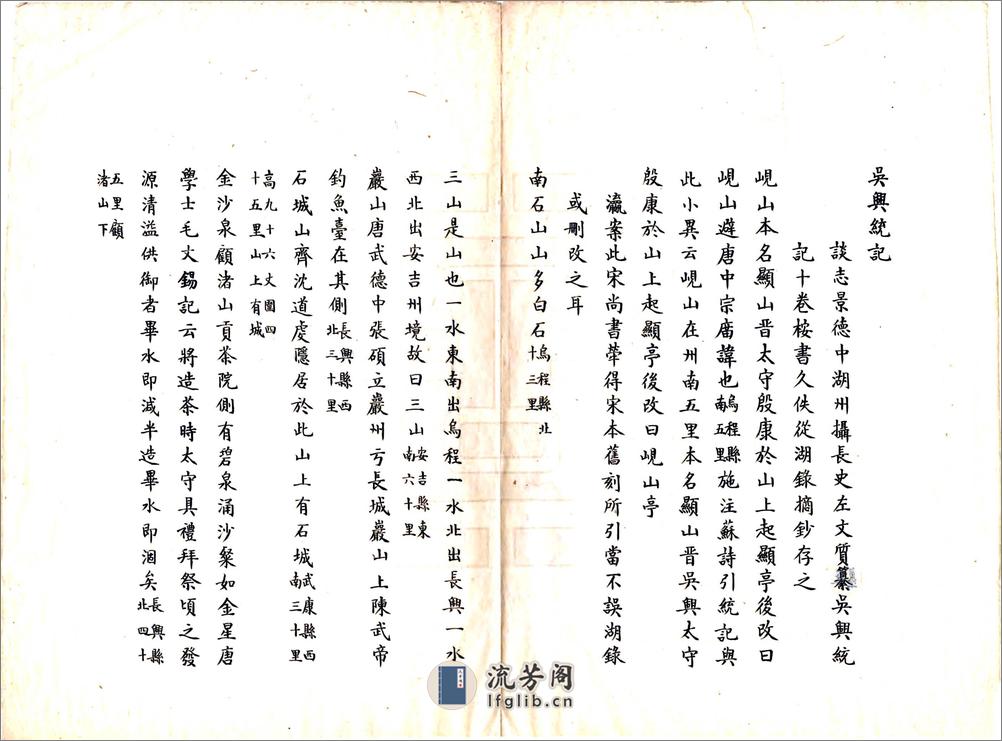 吳興統記
談志景德中湖州攝長史左文質纂吳興統
記十卷桉書久佚從湖錄摘鈔存之
峴山本名顯山晋太守殷康於山上起顯亭後改曰
峴山避唐中宗廟諱也烏程縣南五里施注蘇詩引統記與
此小異云峴山在州南五里本名顯山晋吳興太守
殷康於山上起顯亭後改曰峴山亭
瀛案此宋尚書犖得宋本舊刻所引當不誤湖錄
或刪改之耳
南石山山多白石烏程縣北十三里
三山是山也一水東南出烏程一水北出長興一水
西北出安吉州境故曰三山安吉縣東南六十里
巖山唐武德中張碩立巖州亏長城巖山上陳武帝
釣魚臺在其側長興縣西北三十里
石城山齊沈道虔隱居於此山上有石城武康縣西南三十里
高九十六丈圍四十五里山上有城
金沙泉顧渚山貢茶院側有碧泉涌沙粲如金星唐
學士毛文錫記云將造茶時太守具禮拜祭頃之發
源清溢供御者畢水即減半造畢水即涸矣長興縣北四十
五里顧渚山下
流芳阁
lfglib.cn